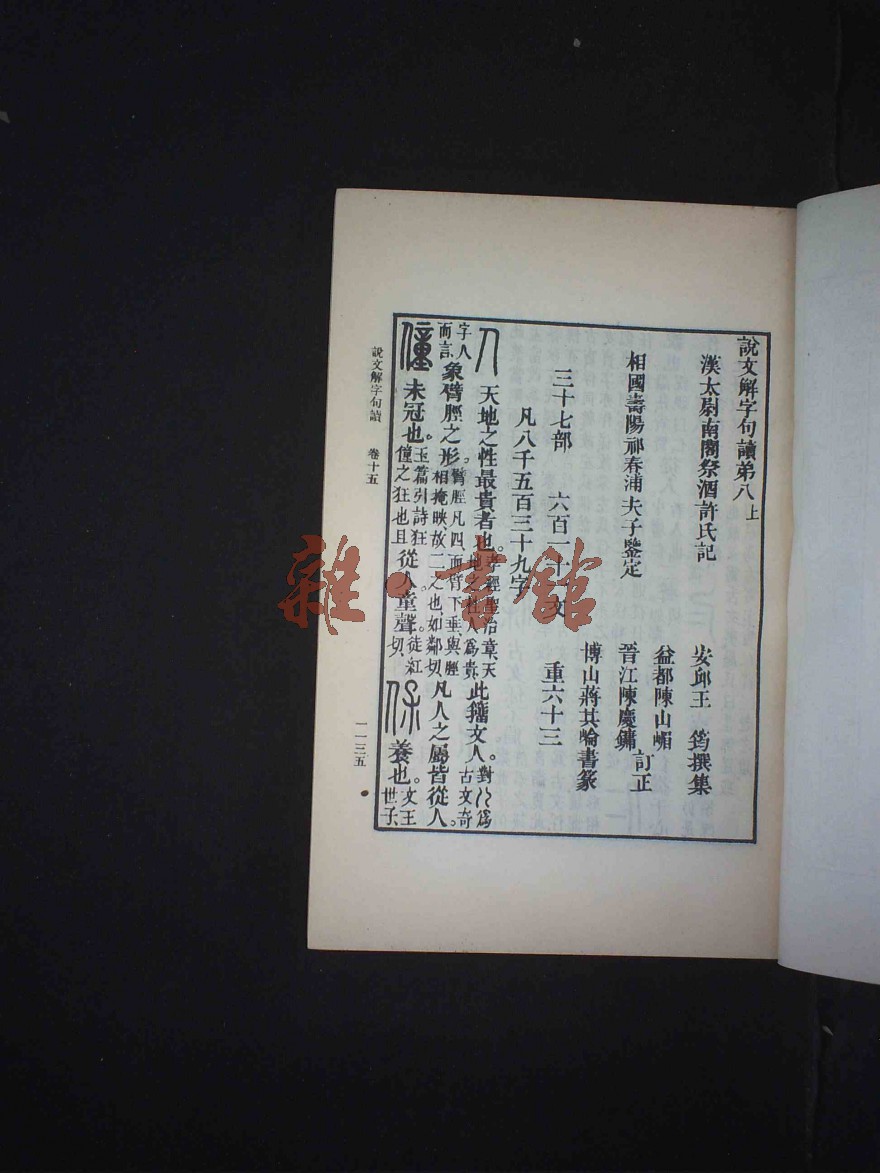 說文解字句讀弟八上
漢太尉南閣祭酒許氏記
安邱王　筠撰集
相國壽陽祁春浦夫子鑒定
益都陳山嵋
晉江陳慶鏞 訂正
博山蔣其崘書篆
三十七部　六百一十一文　重六十三
凡八千五百三十九字
人 天地之性最貴者也。孝經聖治章、天地之性人爲貴 此籒文人。對儿爲古文奇
字人而言 象臂脛之形。臂脛凡四、而臂下垂、與脛相掩映、故二之也、如鄰切 凡人之屬皆從人
僮 未冠也。玉篇引詩狂僮之狂也且 從人童聲。徒紅切 保 養也。文王世子、
說文解字句讀　卷十五
一一三五
雜·書館